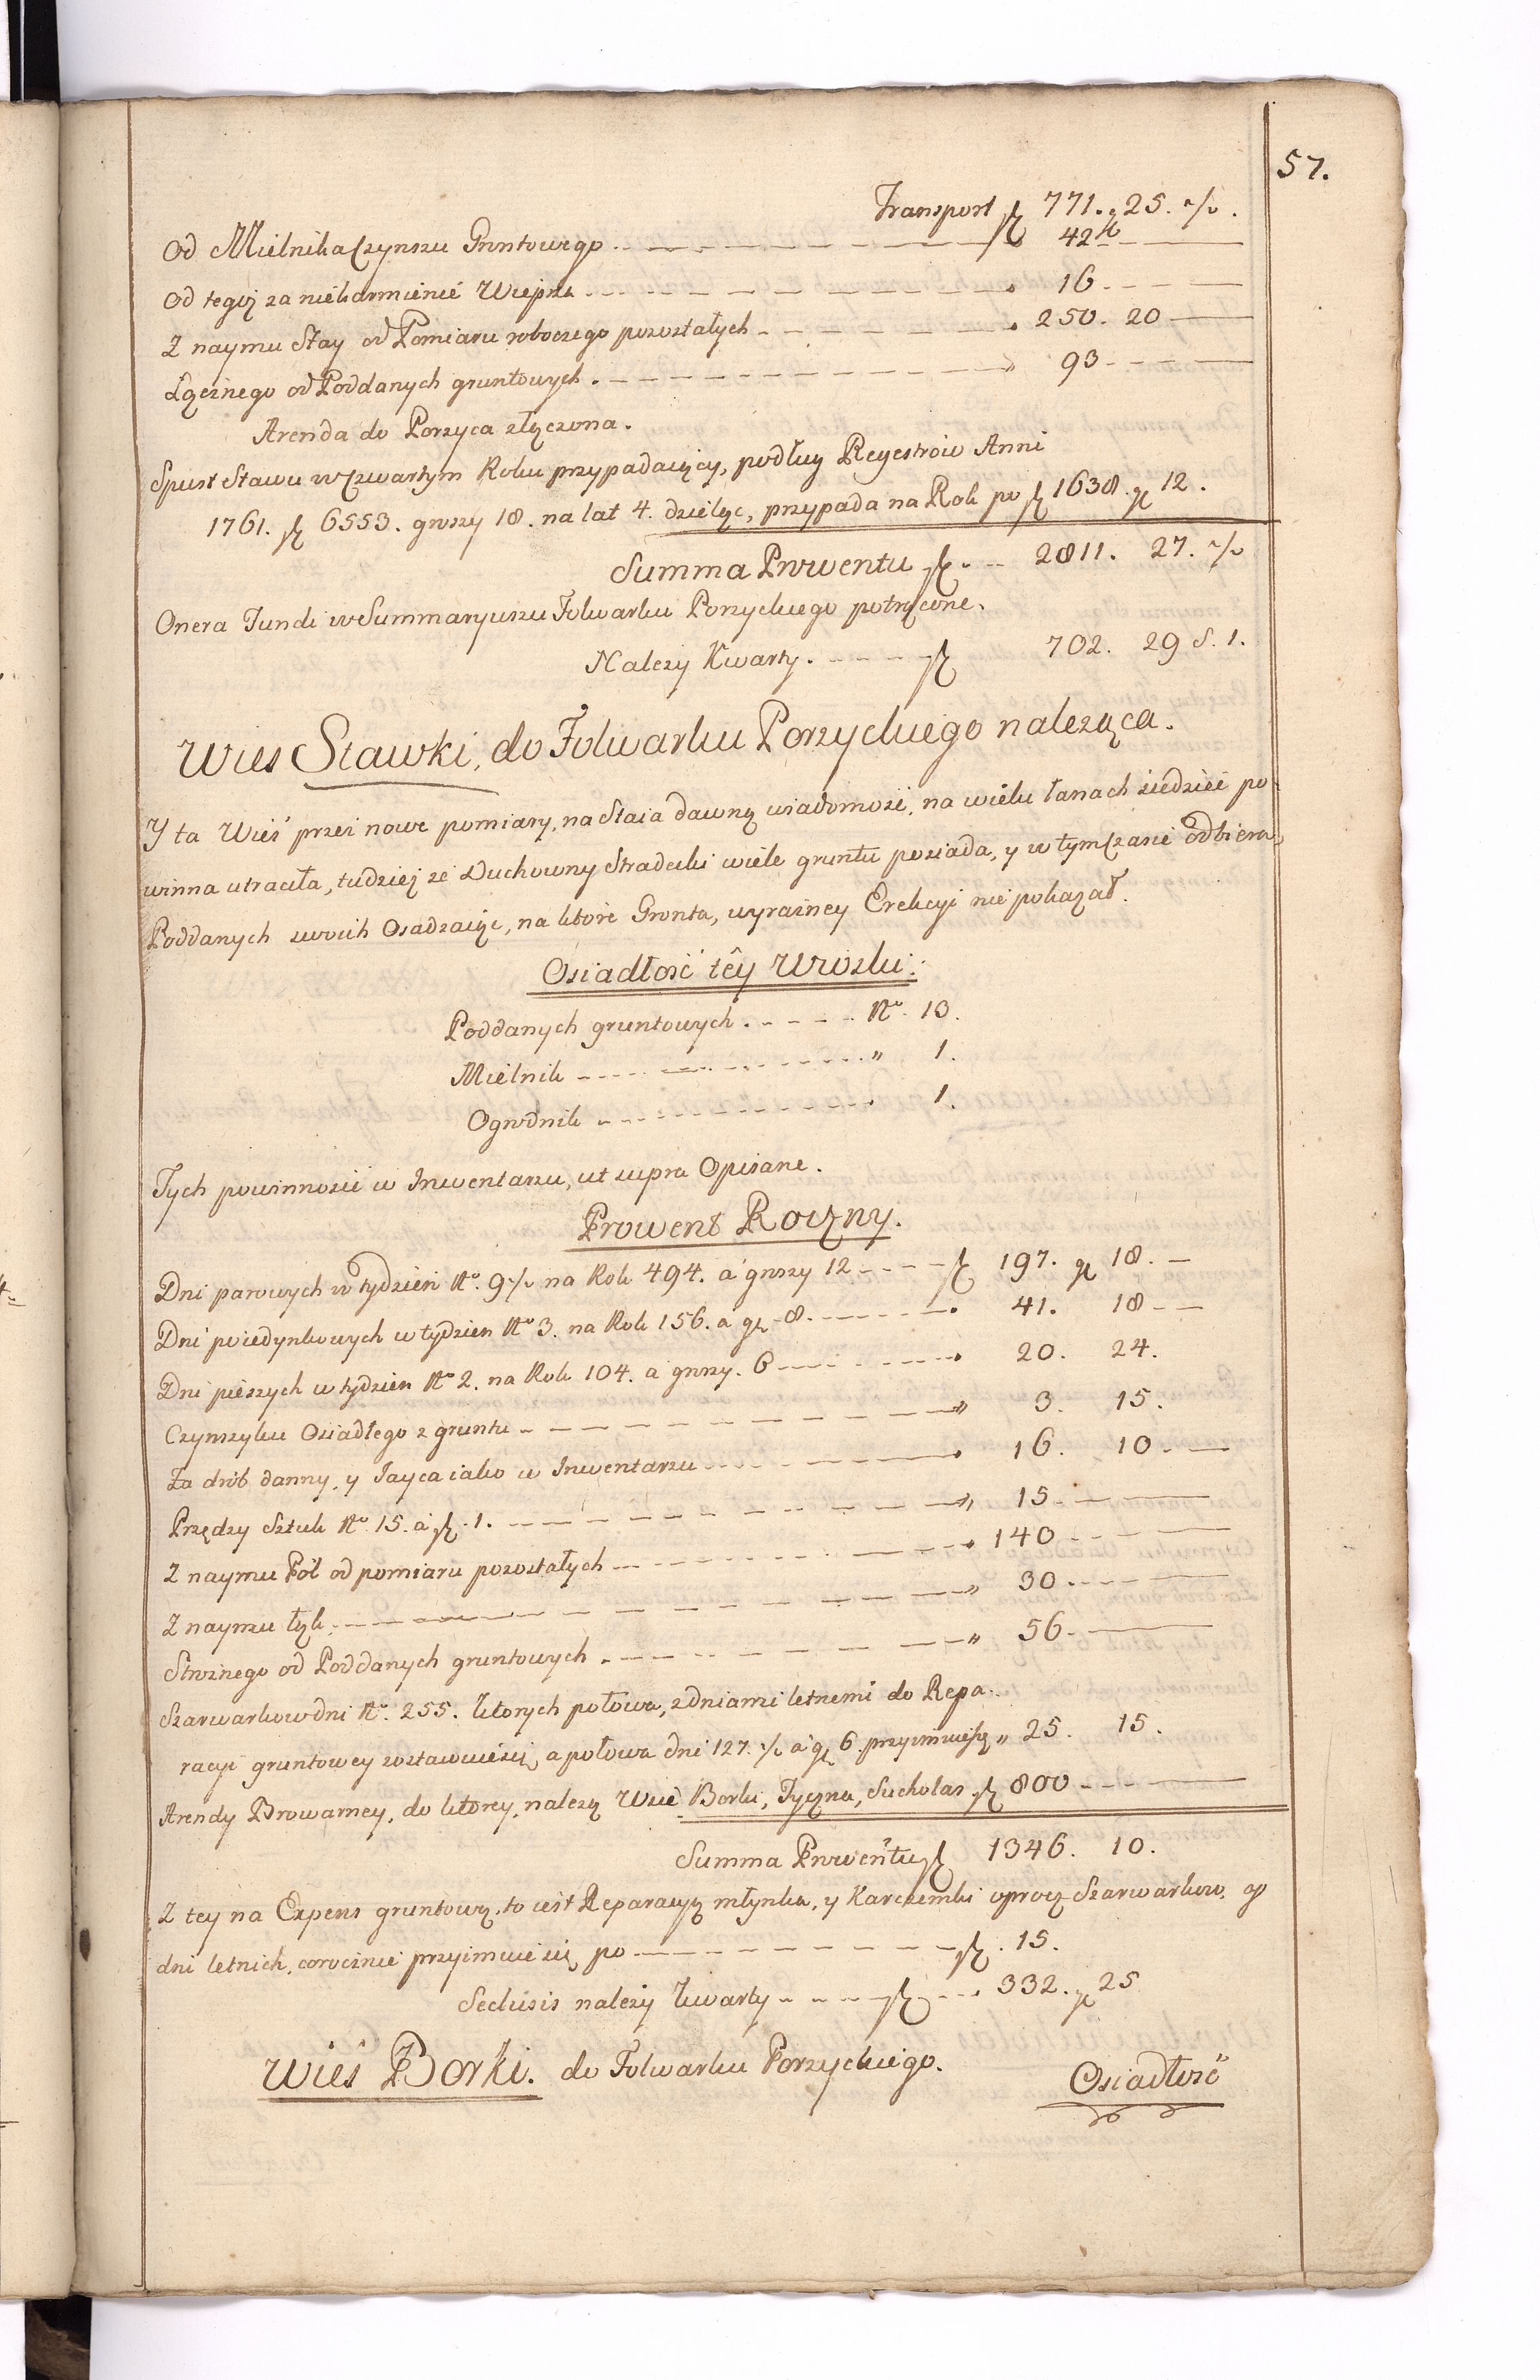 57.
Transport zł 771. gr 25. ½.
Od Mielnika Czynszu Gruntowego - - - - zł 42 - - -
Od tegoż za niekarmienie Wieprza - - - - " 16 - - -
Z naymu Stay od Pomiaru roboczego pozostałych - - - " 250. 20 - -
Łącznego od Poddanych gruntowych - - - - " 93 - - -
Arenda do Porzyca złączona.
Spust Stawu w Czwartym Roku przypadaiący, podług Regestrów Anni
1761. zł 6553. groszy 18. na lat 4. dzieląc, przypada na Rok po zł 1638. gr 12.
Summa Prowentu zł - - 2811. 27. ½
Onera Fundi w Summaryuszu Folwarku Porzyckiego potrącone.
Nalezy Kwarty - - - - zł 702. 29 S. 1.
Wies Stawki, do Folwarku Porzyckiego naleząca.
Y ta Wieś przez nowe pomiary, na Staia dawną wiadomość, na wielu łanach siedzieć po-
winna utraciła, tudziesz że Duchowny Stradecki wiele gruntu posiada, y w tym czasie odbiera,
Poddanych swoich Osadzaiąc, na ktore Gronta, wyraźney Erekcyi nie pokazał.
Osiadłość têy Wioski:
Poddanych gruntowych - - - - No. 13.
Mielnik - - - - " 1.
Ogrodnik - - - - 1.
Tych powinności w Inwentarzu, ut supra Opisane.
Prowent Roczny.
Dni parowych w tydzień No. 9 ½ na Rok 494. a groszy 12 - - - - zł 197. gr 18. -
Dni poiedynkowych w tydzien No 3. na Rok 156. a gr. 8. - - - - " 41. 18 - -
Dni pieszych w tydzien No 2. na Rok 104. a groszy. 6 - - - - " 20. 24.
Czynszyku Osiadłego z gruntu - - - - " 3. 15.
Za drób danny, y Jayca iako w Inwentarzu - - - - " 16. 10 - -
Przędzy Sztuk No. 15. a zł. 1. - - - - " 15 - - -
Z naymu Pól od pomiaru pozostałych - - - - " 140 - - -
Z naymu łąk - - - - " 30 - - -
Stróżnego od Poddanych gruntowych - - - - " 56 - -
Szarwarkow dni No. 255. ktorych połowa, z dniami letnemi do Repa-
racyi gruntowey zostawuie się, a połowa dni 127. ½ a gr 6. przyimuie się " 25. 15.
Arendy Browarney, do ktorey, nalezą Wsie Borki, Tyczna, Sucholas zł 800 - - -
Summa Prowentu zł 1346. 10.
Z tey na Expens gruntową, to iest Reparacyą młynka, y Karczemki oprocz Szarwarkow, y
dni letnich, corocznie przyimuie się po - - - - zł. 15.
Seclusis nalezy kwarty - - - - zł - - 332. gr 25
Wieś Borki. do Folwarku Porzyckiego.
Osiadłość